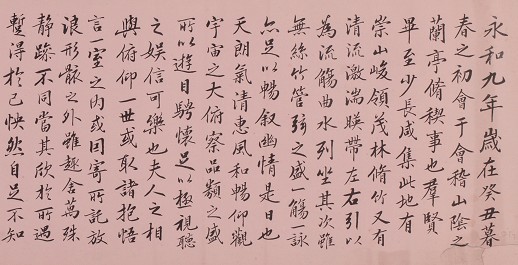 永和九年歲在癸丑暮
春之初會于會稽山陰之
蘭亭脩稧事也羣賢
畢至少長咸集此地有
崇山峻領茂林脩竹又有
清流激湍暎帶左右引以
為流觴曲水列坐其次雖
無絲竹管弦之盛一觴一詠
亦足以暢叙幽情是日也
天朗氣清惠風和暢仰觀
宇宙之大俯察品類之盛
所以遊目騁懷足以極視聽
之娛信可樂也夫人之相
與俯仰一世或取諸抱悟
言一室之内或因寄所託放
浪形骸之外雖趣舍萬殊
静躁不同當其欣於所遇
暫得於己怏然自足不知